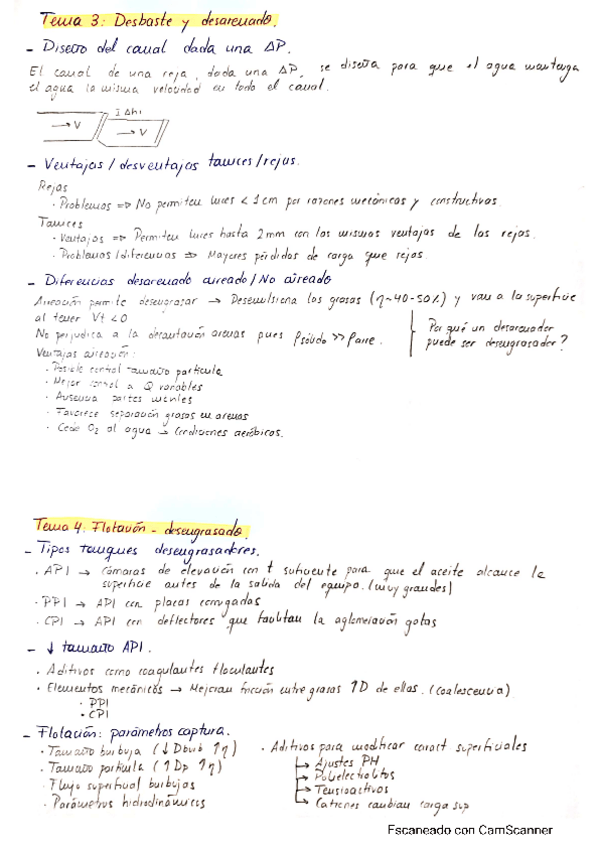 Tema 3: Desbaste y desarenado.
- Diseño del canal dada una ΔP.
El canal de una reja, dada una ΔP, se diseña para que el agua mantenga
el agua la misma velocidad en todo el canal.
I Δh1
→ V
→ V
- Ventajas / desventajas tamices / rejas.
Rejas
· Problemas => No permiten luces < 1cm por razones mecánicas y constructivas.
Tamices
· Ventajas => Permiten luces hasta 2mm con las mismas ventajas de las rejas.
· Problemas / diferencias => Mayores pérdidas de carga que rejas.
- Diferencias desarenado aireado / No aireado
Aireación permite desengrasar → Desemulsiona las grasas (η~40-50%) y van a la superficie
al tener Vt < 0
No perjudica a la decantación arenas pues ρsólido >> ρaire.
Por qué un desarenador
puede ser desengrasador?
Ventajas aireación:
· Posible control tamaño partícula
· Mejor control a Q variables
· Ausencia partes móviles
· Favorece separación grasas en arenas
· Cede O2 al agua → Condiciones aeróbicas.
Tema 4: Flotación - desengrasado.
- Tipos tanques desengrasadores.
· API → Cámaras de elevación con t suficiente para que el aceite alcance la
superficie antes de la salida del equipo. (muy grandes)
· PPI → API con placas corrugadas
· CPI → API con deflectores que facilitan la aglomeración gotas
- ↓ tamaño API.
· Aditivos como coagulantes floculantes
· Elementos mecánicos → Mejoran fricción entre grasas ↑D de ellas. (coalescencia)
· PPI
· CPI
- Flotación: parámetros captura.
· Tamaño burbuja (↓ Dburb ↑η)
· Tamaño partícula (↑ Dp ↑η)
· Flujo superficial burbujas
· Parámetros hidrodinámicos
· Aditivos para modificar caract superficiales
→ Ajustes PH
→ Polielectrolitos
→ Tensioactivos
→ Cationes cambian carga sup
Escaneado con CamScanner